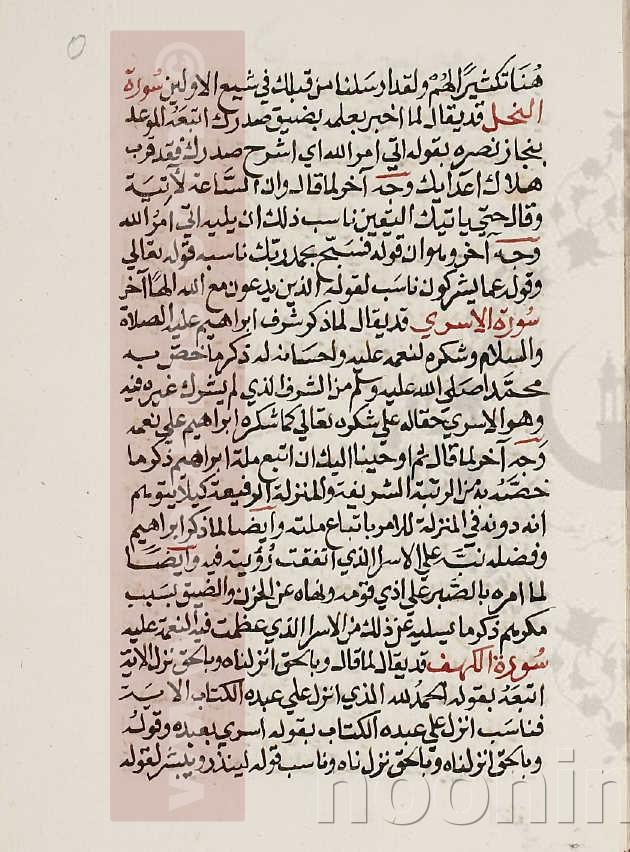 هنا تكثيرا لهم ولقد ارسلنا من قبلك في شيع الاولين سورة
النحل قد يقال لما اخبر بعلمه بضيق صدرك اتبعه الموعد
بنجاز نصره بقوله اتي امر الله اي اشرح صدرك فقد قرب
هلاك اعدايك وجه آخر لما قال وان الساعة لآتية
وقال حتي ياتيك اليقين ناسب ذلك ان يليه اتي امر الله
وجه آخر وهو ان قوله فسبح بحمد ربك ناسبه قوله تعالي
وقوله عما يشركون ناسب لقوله الذين يدعون مع الله الها آخر
سورة الاسري قد يقال لما ذكر شرف ابراهيم عليه الصلاة
والسلام وشكره لنعمه عليه واحسانه له ذكر ما خص به
محمدا صلي الله عليه وسلم من الشرف الذي لم يشرك غيره فيه
وهو الاسري حقا له علي شكره تعالي كما شكره ابراهيم علي نعمه
وجه آخر لما قال ثم اوحينا اليك ان اتبع ملة ابراهيم ذكر ما
خصه به من الرتبة الشريفة والمنزلة الرفيعة كيلا يتوهم
انه دونه في المنزلة للامر باتباع ملته وايضا لما ذكر ابراهيم
وفضله نبه علي الاسرا الذي اتفقت رؤيته فيه وايضا
لما امره بالصبر علي اذي قومه ونهاه عن الحزن والضيق بسبب
مكرهم ذكر ما يسليه عن ذلك من الاسرا الذي عظمت فيه النعمة عليه
سورة الكهف قد يقال لما قال وبالحق انزلناه وبالحق نزل الاية
اتبعه بقوله الحمد لله الذي انزل علي عبده الكتاب الاية
فناسب انزل علي عبده الكتاب بقوله اسري بعبده وقوله
وبالحق انزلناه وبالحق نزل ناه وناسب قوله لينذر ويبشر لقوله
noonin